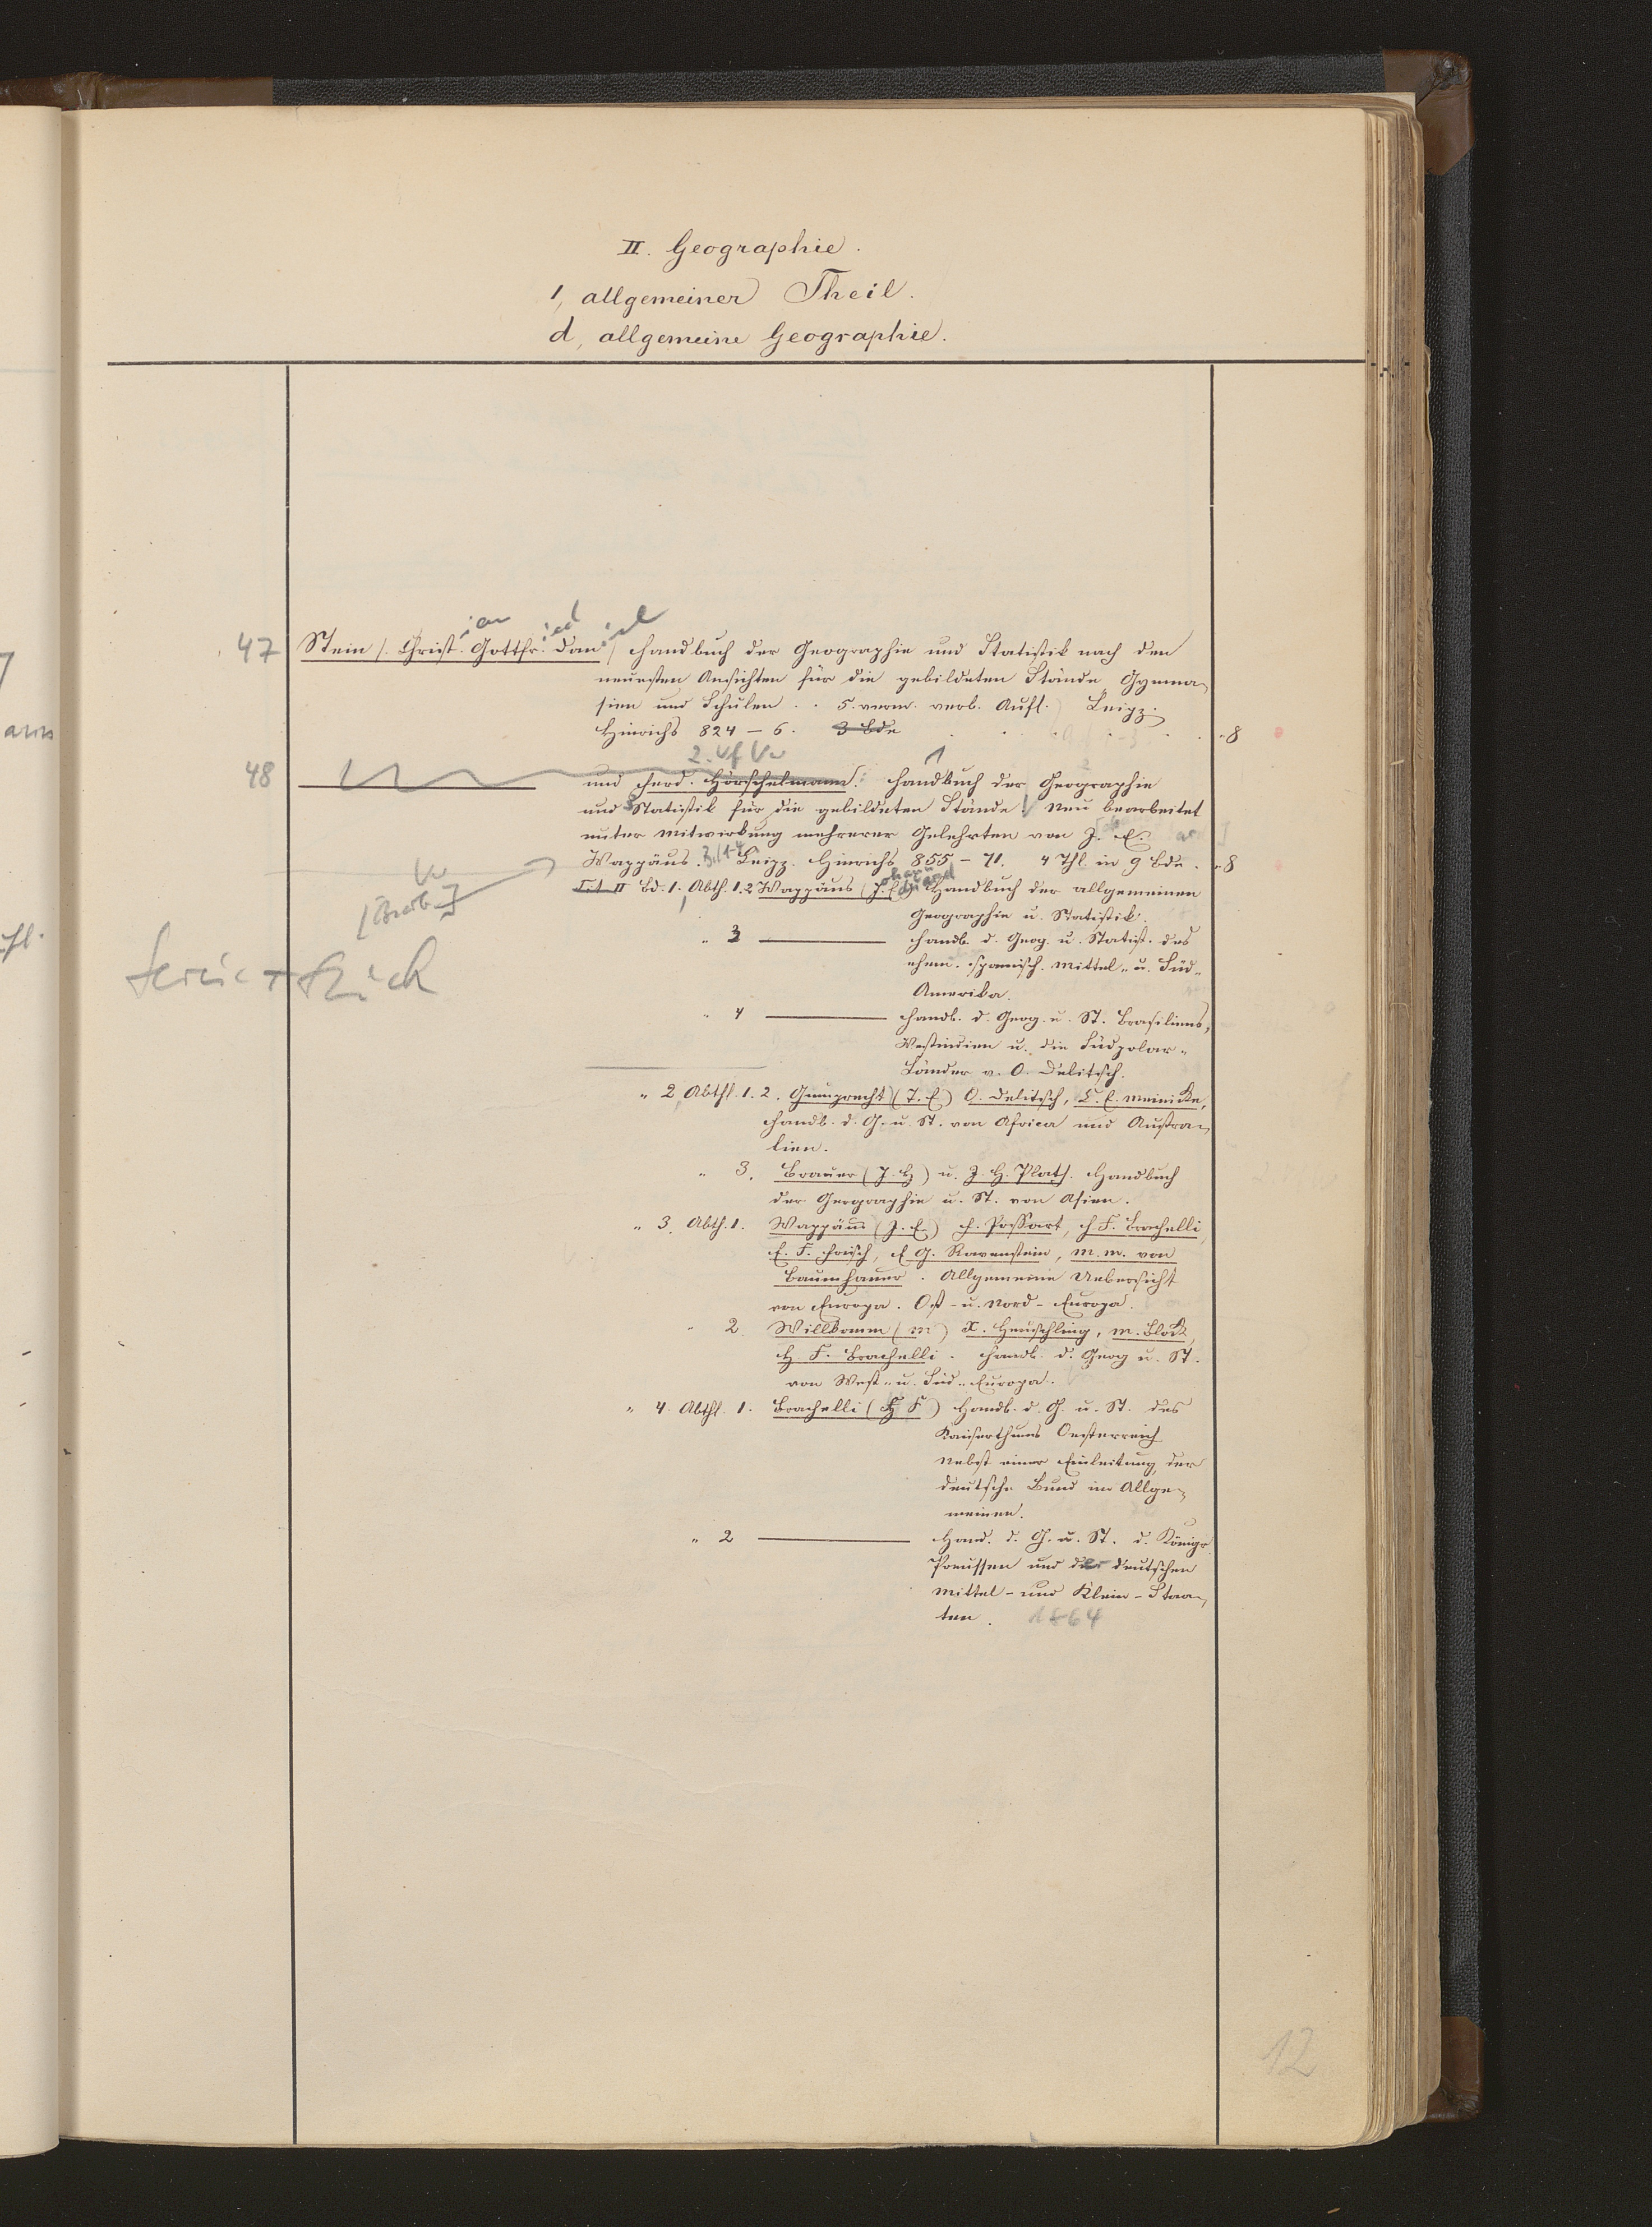 II. Geographie.
1, allgemeiner Theil.
d, allgemeine Geographie.
ian ied iel
47 Stein /. Christ. Gottfr. Dan / Handbuch der Geographie und Statistik nach den
neuesten Ansichten für die gebildeten Stände Gymna-
sien und Schulen . . 5. verm. verb. Aufl. Leipz.
Hinrichs 824 – 6. 3 Bde . . . . . 8
48 und Ferd. Hörschelmann. Handbuch der Geographie
und Statistik für die gebildeten Stände. Neu bearbeitet
unter Mitwirkung mehrerer Gelehrten von J. E.
Wappäus. Leipz. Hinrichs 855 – 71. 4 Thl. in 9 Bde. . 8
[Bearb.]
Tit II Bd. 1. Abth. 1.2 Wappäus (J. E) Handbuch der allgemeinen
Geographie u. Statistik.
" 3 ——— Handb. d. Geog. u. Statist. des
ehem. spanisch. Mittel- u. Süd-
Amerika.
" 4 ——— Handb. d. Geog. u. St. Brasiliens,
Westindien u. die Südpolar-
Länder v. O. Delitsch.
" 2, Abthl. 1. 2. Gumprecht (T. E) O. Delitsch, C. E. Meinicke,
Handb. d. G. u. St. von Africa und Austra-
lien.
" 3. Brauer (J. H) u. J. H. Plath. Handbuch
der Geographie u. St. von Asien.
" 3. Abth. 1. Wappäus (J. E) F. Possart, H F. Brachelli,
E. F. Frisch, E G. Ravenstein, M. M. von
Baumhauer. Allgemeine Uebersicht
von Europa. Ost- u. Nord-Europa.
" 2. Willkomm (M) X. Heuschling, M. Block,
H. F. Brachelli. Handb. d. Geog u. St.
von West- u. Süd-Europa.
" 4. Abthl. 1. Brachelli (H F) Handb. d. G. u. St. des
Kaiserthums Oesterreich
nebst einer Einleitung, der
deutsche Bund im Allge-
meinen.
" 2 ——— Hand. d. G. u. St. d. Königr.
Preussen und der deutschen
Mittel- und Klein-Staa-
ten. 1864
12